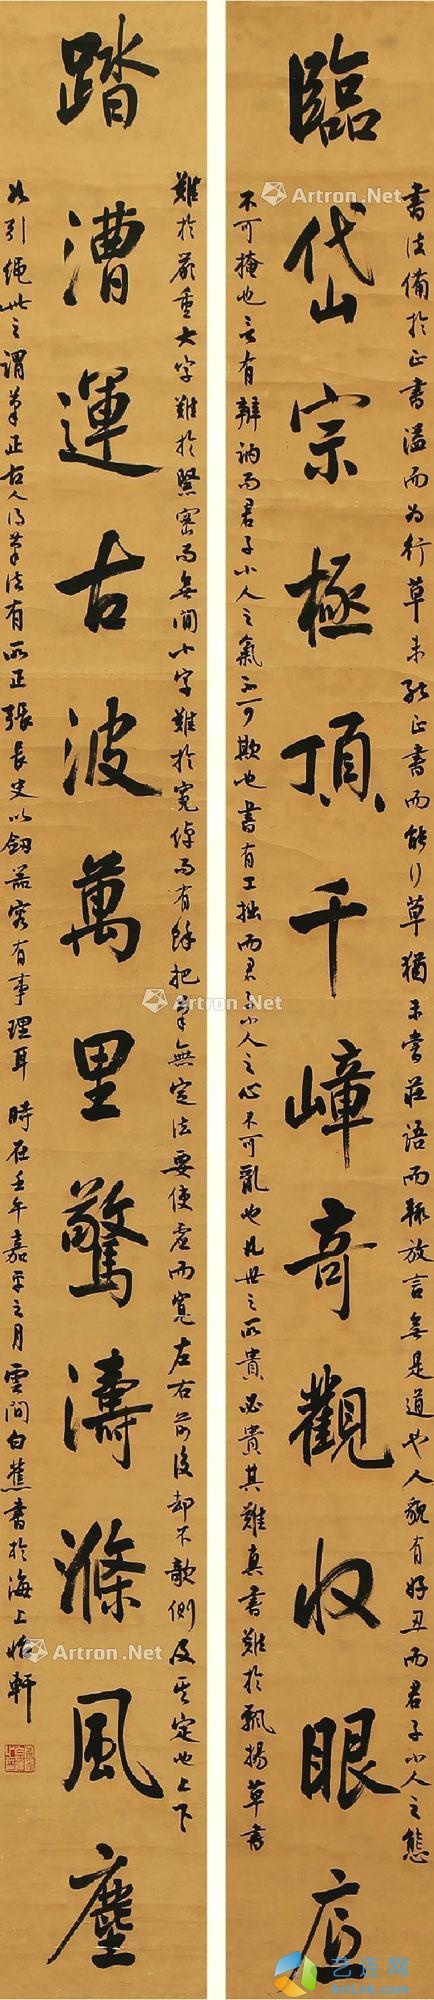 臨岱宗極頂千嶂奇觀收眼底
書法備於正書溢而为行草未能正書而能行草猶未嘗莊語而輒放言無是道也人貌有好丑而君子小人之態
不可掩也言有辯訥而君子小人之氣不可欺也書有工拙而君子小人之心不可亂也凡世之所貴必貴其難真書難於飄揚草書
踏漕運古波萬里驚濤滌風塵
難於嚴重大字難於緊密而無間小字難於寬綽而有餘把筆無定法要使虛而寬左右前後却不欹側及其定也上下
如引繩此之謂筆正古人得筆法有所正張長史以劍器容有事理耳 時在壬午嘉平之月雲間白蕉書於海上怡軒
Artron.Net
Artron.Net
Artron.Net
Artron.Net
Artron.Net
Artron.Net
艺库网